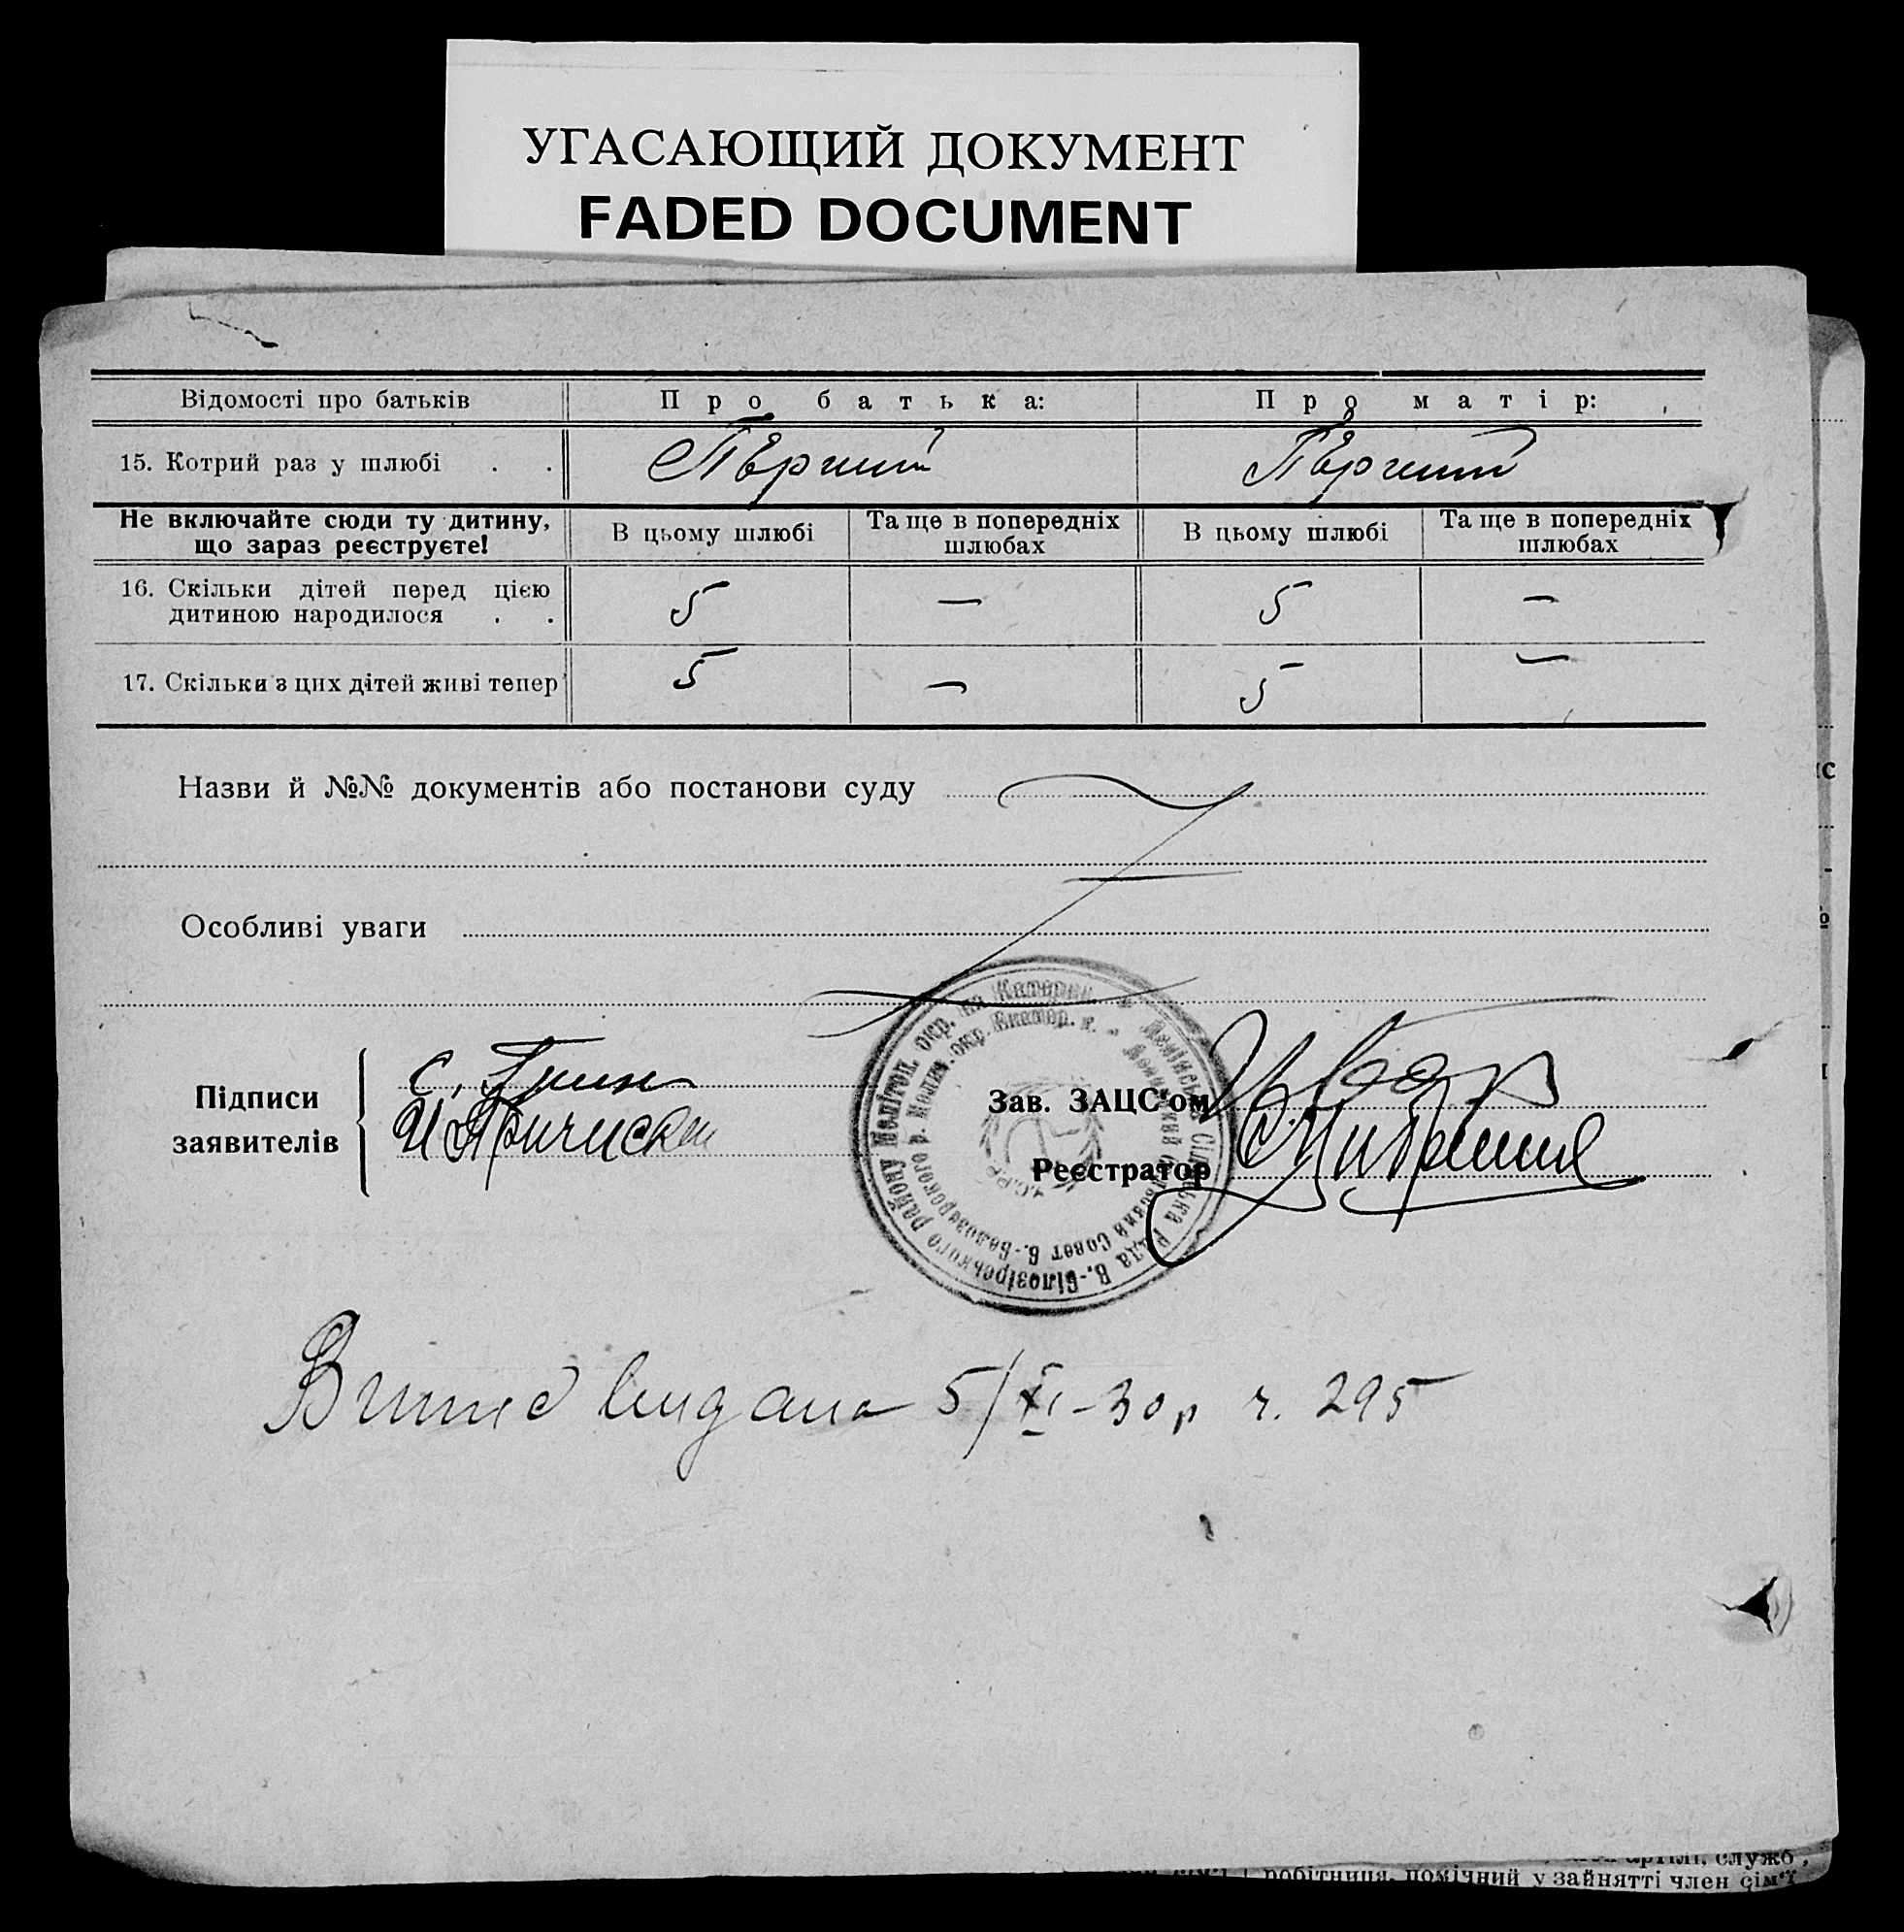 УГАСАЮЩИЙ ДОКУМЕНТ
FADED DOCUMENT
Відомості про батьків Про батька: Про матір:
15. Котрий раз у шлюбі . . Перший Перший
Не включайте сюди ту дитину, що зараз реєструєте! В цьому шлюбі Та ще в попередніх шлюбах В цьому шлюбі Та ще в попередніх шлюбах
16. Скільки дітей перед цією дитиною народилося . . 5 — 5 —
17. Скільки з цих дітей живі тепер 5 — 5 —
Назви й №№ документів або постанови суду
Особливі уваги
Підписи заявителів
С.
Зав. ЗАЦС'ом
Реєстратор
Ленінська Сільська Рада В.-Білозірського району Мелітоп. окр. на Катерин.
В.-Белозерского р. Мелит. окр. Екатер. г.
видана 5/XI-30р ч. 295
робітниця, помічний у зайнятті член сім'ї